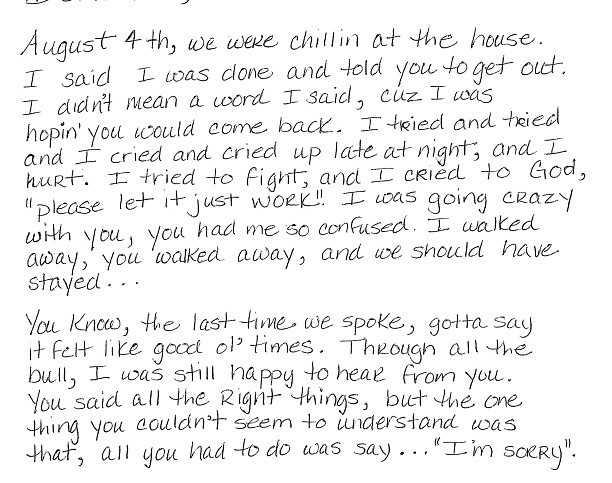 August 4th, we were chillin at the house.
I said I was done and told you to get out.
I didn't mean a word I said, cuz I was
hopin' you would come back. I tried and tried
and I cried and cried up late at night, and I
hurt. I tried to fight, and I cried to God,
"please let it just work!! I was going crazy
with you, you had me so confused. I walked
away, you walked away, and we should have
stayed...
You know, the last time we spoke, gotta say
it felt like good ol' times. Through all the
bull, I was still happy to hear from you.
You said all the right things, but the one
thing you couldn't seem to understand was
that, all you had to do was say..."I'm sorry".